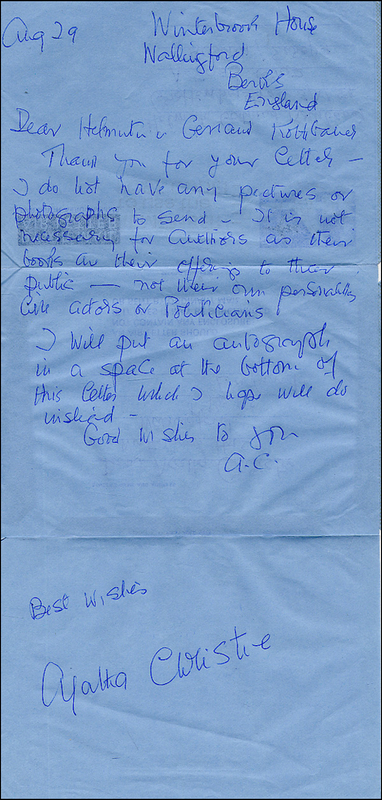 Aug 29
Winterbrook House
Wallingford
Berks
England
Dear Helmut u Gerhard
Thank you for your letter —
I do not have any pictures or
photographs to send — It is not
necessary for authors as their
books are their offering to their
public — not their own personality
like actors or Politicians
I will put an autograph
in a space at the bottom of
this letter which I hope will do
instead —
Good wishes to you
A.C.
Best Wishes
Agatha Christie